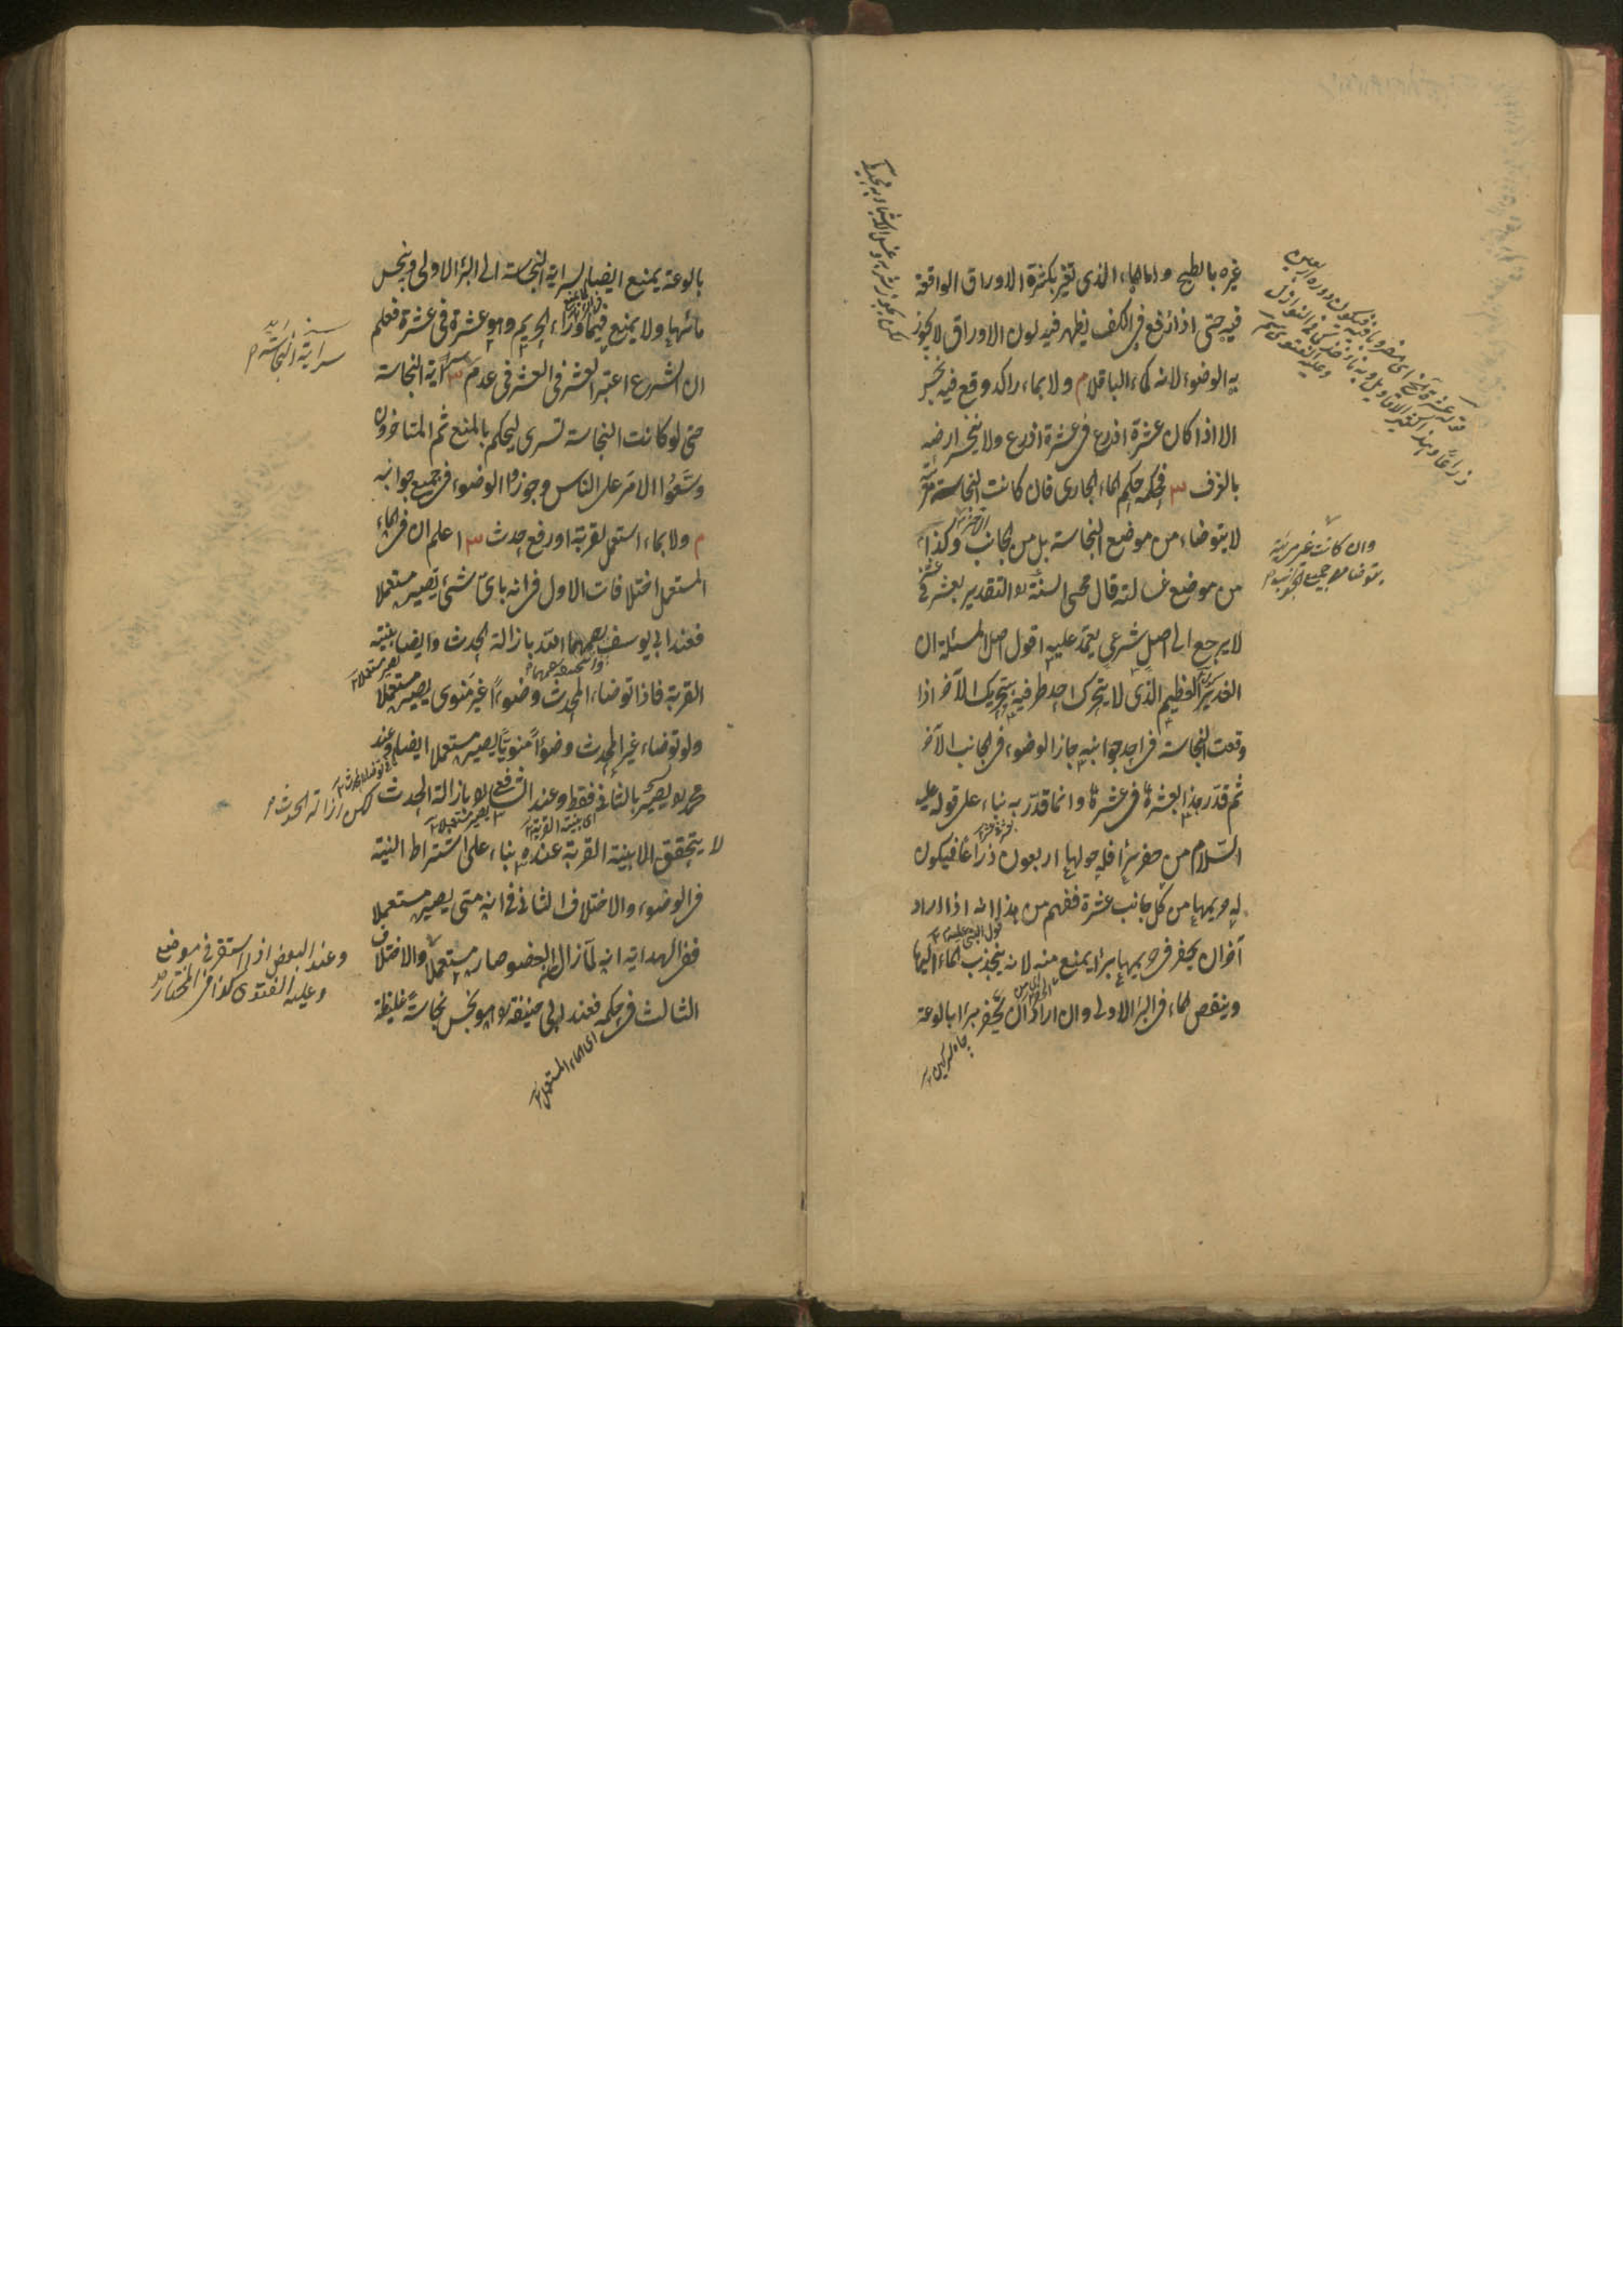 غيره بالطبخ واما الماء الذى تغير بكثرة الاوراق الواقعة
فيه حتى اذا رفع فى الكف يظهر فيه لون الاوراق لا يجوز
به الوضوء لانه كماء الباقلا م ولا بماء راكد وقع فيه نجس
الا اذا كان عشرة اذرع فى عشرة اذرع ولا ينحسر ارضه
بالغرف ش فحكمه حكم الماء الجارى فان كانت النجاسة مرئية
لا يتوضاء من موضع النجاسة بل من الجانب الآخر وكذا
من موضع غسالته قال محى السنة التقدير بعشر فى عشر
لا يرجع الى اصل شرعى يعتمد عليه اقول اصل المسئلة ان
الغدير العظيم الذى لا يتحرك احد طرفيه بتحريك الآخر اذا
وقعت النجاسة فى احد جوانبه جاز الوضوء فى الجانب الآخر
ثم قدر هذا بعشرة فى عشرة وانما قدر به بناء على قوله عليه
السلام من حفر بئرا فله حولها اربعون ذراعا فيكون
له حريمها من كل جانب عشرة ففهم من هذا انه اذا اراد
آخر ان يحفر فى حريمها بئرا يمنع منه لانه ينجذب الماء اليها
وينقص الماء فى البئر الاولى وان اراد ان يحفر بئرا بالوعة
وان كانت غير مرئية
يتوضا من جميع الجوانب م
بالوعة يمنع ايضا لسراية النجاسة الى البئر الاولى وينجس
مائها ولا يمنع فيما وراء الحريم وهو عشرة فى عشرة فعلم
ان الشرع اعتبر العشر فى العشر فى عدم سراية النجاسة
حتى لو كانت النجاسة تسرى ليحكم بالمنع ثم المتاخرون
وسعوا الامر على الناس وجوزوا الوضوء فى جميع جوانبه
م ولا بماء استعمل لقربة او رفع حدث ش اعلم ان فى الماء
المستعمل اختلافات الاول فى انه باى شئ يصير مستعملا
فعند ابى يوسف رحمهما الله بازالة الحدث وايضا بنية
القربة فاذا توضاء المحدث وضوءا غير منوى يصير مستعملا
ولو توضاء غير المحدث وضوءا منويا يصير مستعملا ايضا وعند
محمد يصير بالثانى فقط وعند الشافعى بازالة الحدث لكن ازالة الحدث م
لا يتحقق الا بنية القربة عنده بناء على اشتراط النية
فى الوضوء والاختلاف الثانى فى انه متى يصير مستعملا
ففى الهداية انه كما زال العضو صار مستعملا والاختلاف
الثالث فى حكمه فعند ابى حنيفة هو نجس نجاسة غليظة
سراية النجاسة م
وعند البعض اذا استقر فى موضع
وعليه الفتوى كذا فى المختار
اى الماء المستعمل